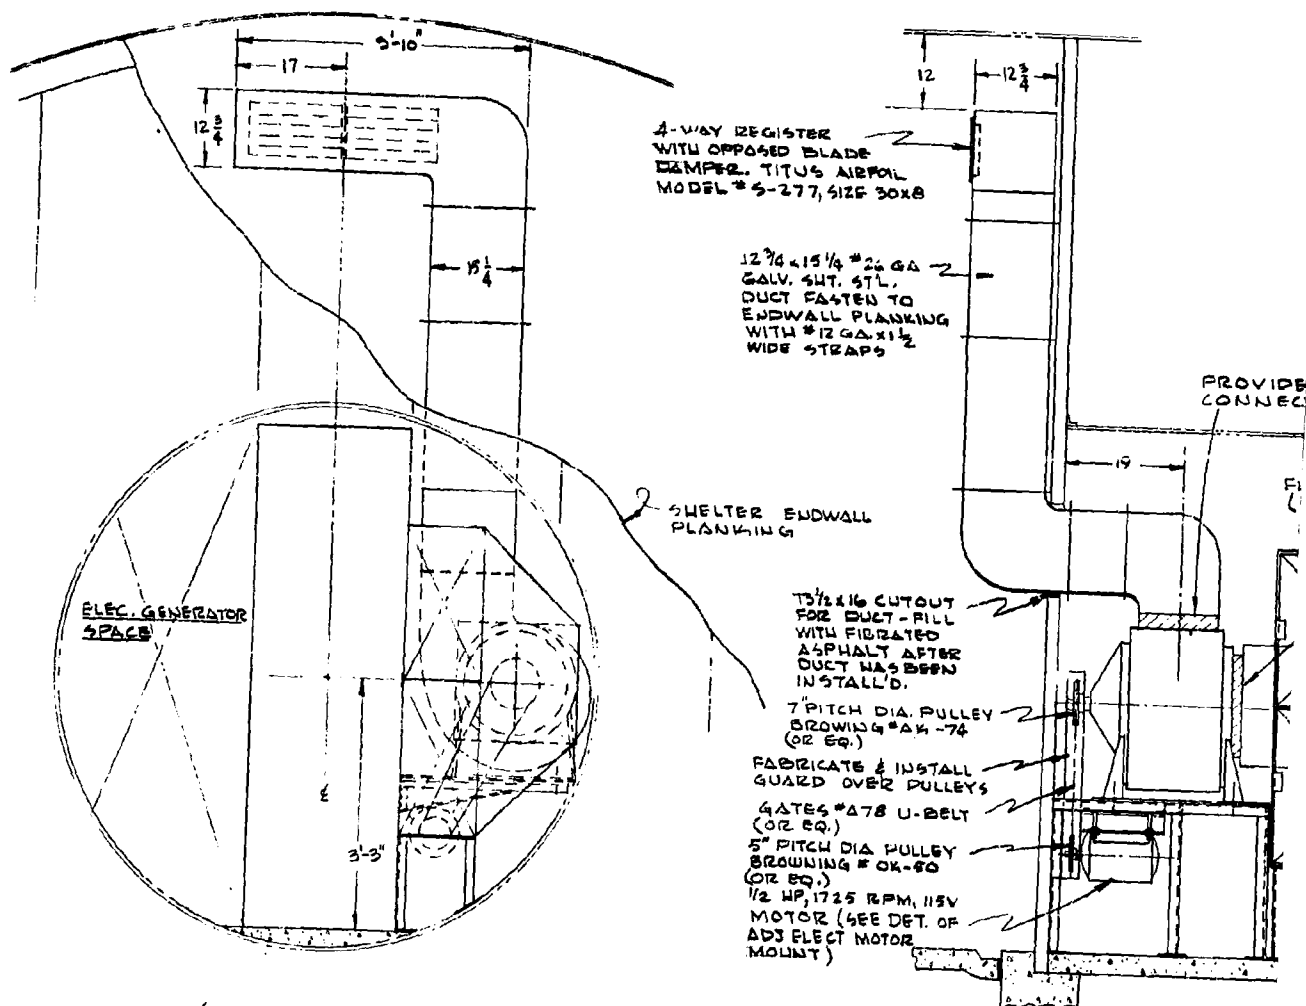 3'-10"
17
12 3/4
15 1/4
ELEC. GENERATOR
SPACE
℄
3'-3"
SHELTER ENDWALL
PLANKING
12
12 3/4
4-WAY REGISTER
WITH OPPOSED BLADE
DAMPER. TITUS AIRFOIL
MODEL # S-277, SIZE 30X8
12 3/4 x 15 1/4 #26 GA
GALV. SHT. STL.
DUCT FASTEN TO
ENDWALL PLANKING
WITH #12 GA. x 1 1/2
WIDE STRAPS
PROVIDE
CONNEC
19
13 1/2 x 16 CUTOUT
FOR DUCT-FILL
WITH FIBRATED
ASPHALT AFTER
DUCT HAS BEEN
INSTALL'D.
7" PITCH DIA. PULLEY
BROWING #AK-74
(OR EQ.)
FABRICATE & INSTALL
GUARD OVER PULLEYS
GATES #A78 U-BELT
(OR EQ.)
5" PITCH DIA PULLEY
BROWNING # OK-50
(OR EQ.)
1/2 HP, 1725 RPM, 115V
MOTOR (SEE DET. OF
ADJ ELECT MOTOR
MOUNT)